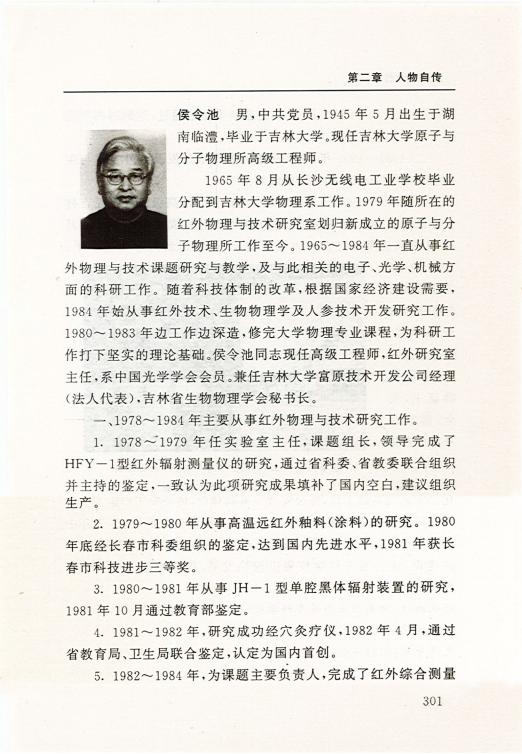 第二章 人物自传
侯令池 男,中共党员,1945 年 5 月出生于湖
南临澧,毕业于吉林大学。现任吉林大学原子与
分子物理所高级工程师。
1965 年 8 月从长沙无线电工业学校毕业
分配到吉林大学物理系工作。1979 年随所在的
红外物理与技术研究室划归新成立的原子与分
子物理所工作至今。1965~1984 年一直从事红
外物理与技术课题研究与教学,及与此相关的电子、光学、机械方
面的科研工作。随着科技体制的改革,根据国家经济建设需要,
1984 年始从事红外技术、生物物理学及人参技术开发研究工作。
1980~1983 年边工作边深造,修完大学物理专业课程,为科研工
作打下坚实的理论基础。侯令池同志现任高级工程师,红外研究室
主任,系中国光学学会会员。兼任吉林大学富原技术开发公司经理
(法人代表),吉林省生物物理学会秘书长。
一、1978~1984 年主要从事红外物理与技术研究工作。
1. 1978~1979 年任实验室主任,课题组长,领导完成了
HFY-1型红外辐射测量仪的研究,通过省科委、省教委联合组织
并主持的鉴定,一致认为此项研究成果填补了国内空白,建议组织
生产。
2. 1979~1980 年从事高温远红外釉料(涂料)的研究。1980
年底经长春市科委组织的鉴定,达到国内先进水平,1981 年获长
春市科技进步三等奖。
3. 1980~1981 年从事 JH-1 型单腔黑体辐射装置的研究,
1981 年 10 月通过教育部鉴定。
4. 1981~1982 年,研究成功经穴灸疗仪,1982 年 4 月,通过
省教育局、卫生局联合鉴定,认定为国内首创。
5. 1982~1984 年,为课题主要负责人,完成了红外综合测量
301